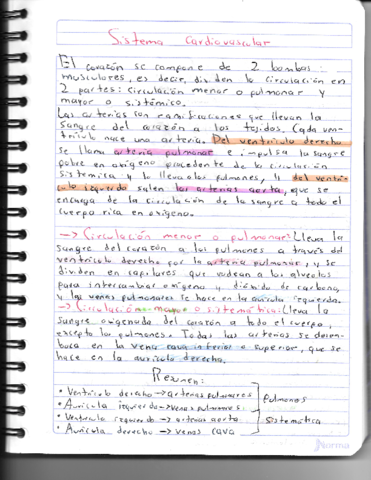 Sistema Cardiovascular
El corazón se compone de 2 bombas
musculares, es decir, dividen la circulación en
2 partes: circulación menor o pulmonar y
mayor o sistémico.
Las arterias son ramificaciones que llevan la
sangre del corazón a los tejidos. Cada ven-
trículo nace una arteria. Del ventrículo derecho
se llama arteria pulmonar e impulsa la sangre
pobre en oxígeno procedente de la circulación
sistémica y lo lleva a los pulmones, y del ventrí-
culo izquierdo salen las arterias aorta, que se
encarga de la circulación de la sangre a todo el
cuerpo rica en oxígeno.
→ Circulación menor o pulmonar: Lleva la
sangre del corazón a los pulmones a través del
ventrículo derecho por la arteria pulmonar, y se
dividen en capilares que rodean a los alveolos
para intercambiar oxígeno y dióxido de carbono,
y las venas pulmonares se hace en la aurícula izquierda.
→ Circulación mayor o sistemática: Lleva la
sangre oxigenada del corazón a todo el cuerpo,
excepto los pulmones. Todas las arterias se desem-
boca en la vena cava inferior o superior, que se
hace en la aurícula derecha.
Resumen:
• Ventrículo derecho → arterias pulmonares
• Aurícula izquierda → venas pulmonares
Pulmones
• Ventrículo izquierdo → arterias aorta
• Aurícula derecho → venas cava
Sistemática
Norma